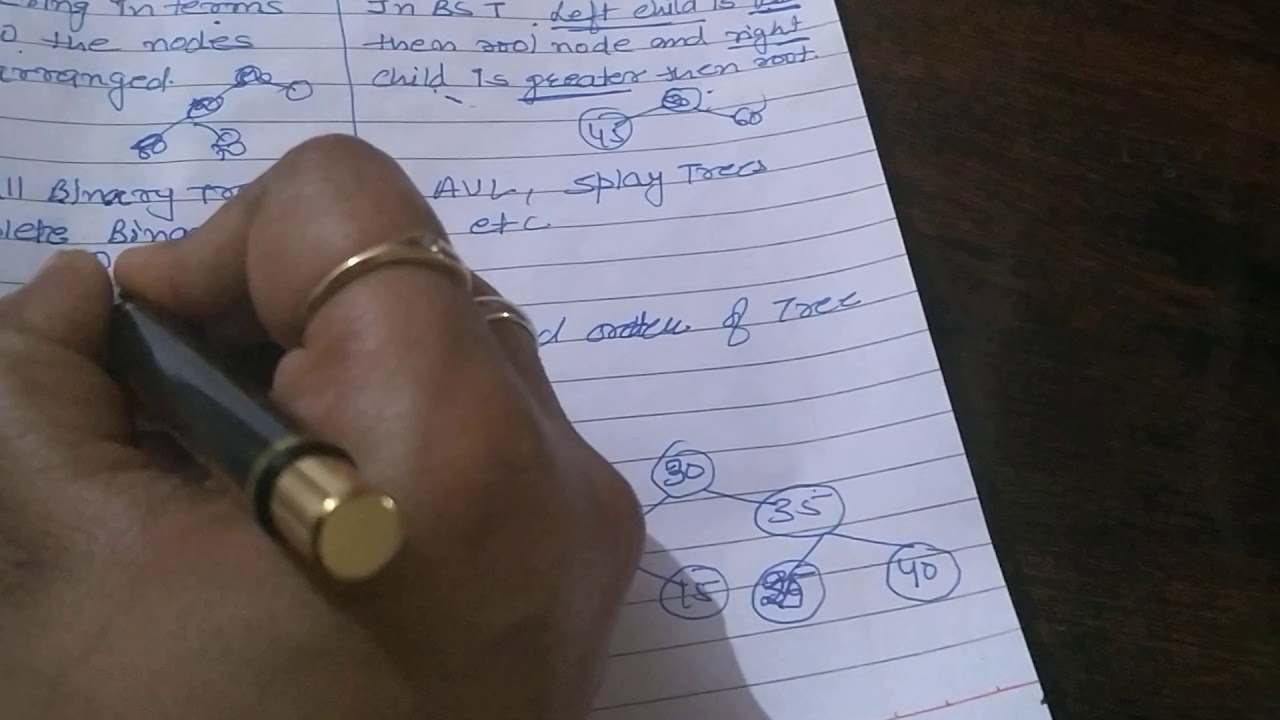 in terms
the nodes
arranged.
In BST left child is
them root node and right
child is greater then root.
45
60
ll Binary Tre
AVL, Splay Trees
lete Bina
etc.
d order of Tree
30
35
15
40